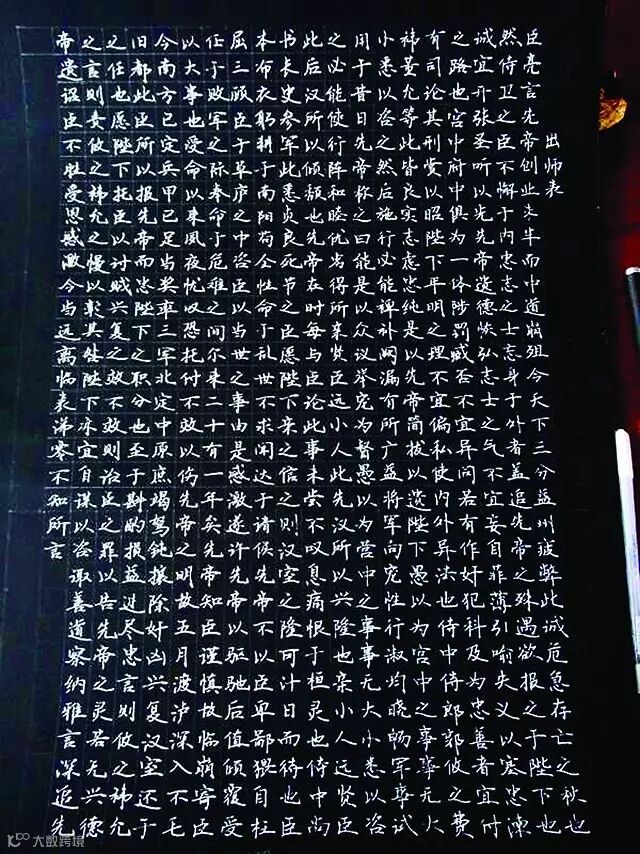 出师表
臣亮言先帝创业未半而中道崩殂今天下三分益州疲弊此诚危急存亡之秋也
然侍卫之臣不懈于内忠志之士忘身于外者盖追先帝之殊遇欲报之于陛下也
诚宜开张圣听以光先帝遗德恢弘志士之气不宜妄自菲薄引喻失义以塞忠谏
之路也宫中府中俱为一体陟罚臧否不宜异同若有作奸犯科及为忠善者宜付
有司论其刑赏以昭陛下平明之理不宜偏私使内外异法也侍中侍郎郭攸之费
祎董允等此皆良实志虑忠纯是以先帝简拔以遗陛下愚以为宫中之事事无大
小悉以咨之然后施行必能裨补阙漏有所广益将军向宠性行淑均晓畅军事试
用于昔日先帝称之曰能是以众议举宠为督愚以为营中之事悉以咨
之必能使行阵和睦优劣得所亲贤臣远小人此先汉所以兴隆也亲小人远贤臣
此后汉所以倾颓也先帝在时每与臣论此事未尝不叹息痛恨于桓灵也侍中尚
书长史参军此悉贞良死节之臣愿陛下亲之信之则汉室之隆可计日而待也臣
本布衣躬耕于南阳苟全性命于乱世不求闻达于诸侯先帝不以臣卑鄙猥自枉
屈三顾臣于草庐之中咨臣以当世之事由是感激遂许先帝以驱驰后值倾覆受
任于败军之际奉命于危难之间尔来二十有一年矣先帝知臣谨慎故临崩寄臣
以大事也受命以来夙夜忧叹恐托付不效以伤先帝之明故五月渡泸深入不毛
今南方已定兵甲已足当奖率三军北定中原庶竭驽钝攘除奸凶兴复汉室还于
旧都此臣所以报先帝而忠陛下之职分也至于斟酌损益进尽忠言则攸之祎允
之任也愿陛下托臣以讨贼兴复之效不效则治臣之罪以告先帝之灵若无兴德
之言则责攸之祎允之慢以彰其咎陛下亦宜自谋以咨诹善道察纳雅言深追先
帝遗诏臣不胜受恩感激今当远离临表涕零不知所言
大数跨境